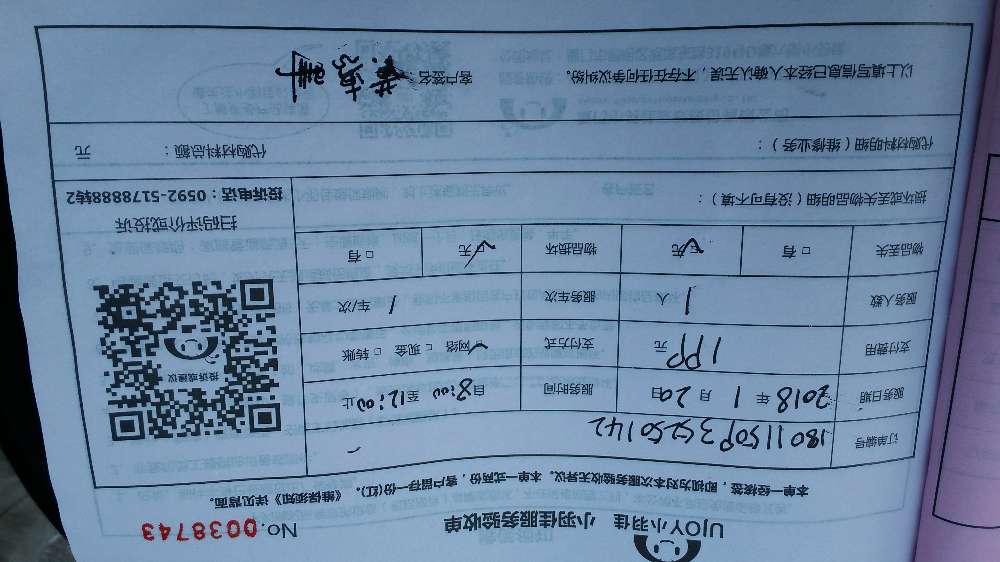 UJOY小羽佳 小羽佳服务验收单 No. 0038743
本单一经接签，即视为对本次服务验收无异议。本单一式两份，客户留存一份(红)。《维保须知》详见背面。
订单编号 1801150935250142
服务日期 2018年1月20日 服务时间 自8:00至12:00止
支付费用 199元 支付方式 ☑网络 □现金 □转账
服务人数 1人 服务车次 1车/次
物品丢失 □有 ☑无 物品损坏 ☑无 □有
投诉或建议
扫码评价或投诉
投诉电话：0592-5178888转2
损坏或丢失物品明细（没有可不填）：
代购材料明细（维修业务）： 代购材料总额： 元
以上填写信息已经本人确认无误，不存在任何争议纠纷。 客户签名：